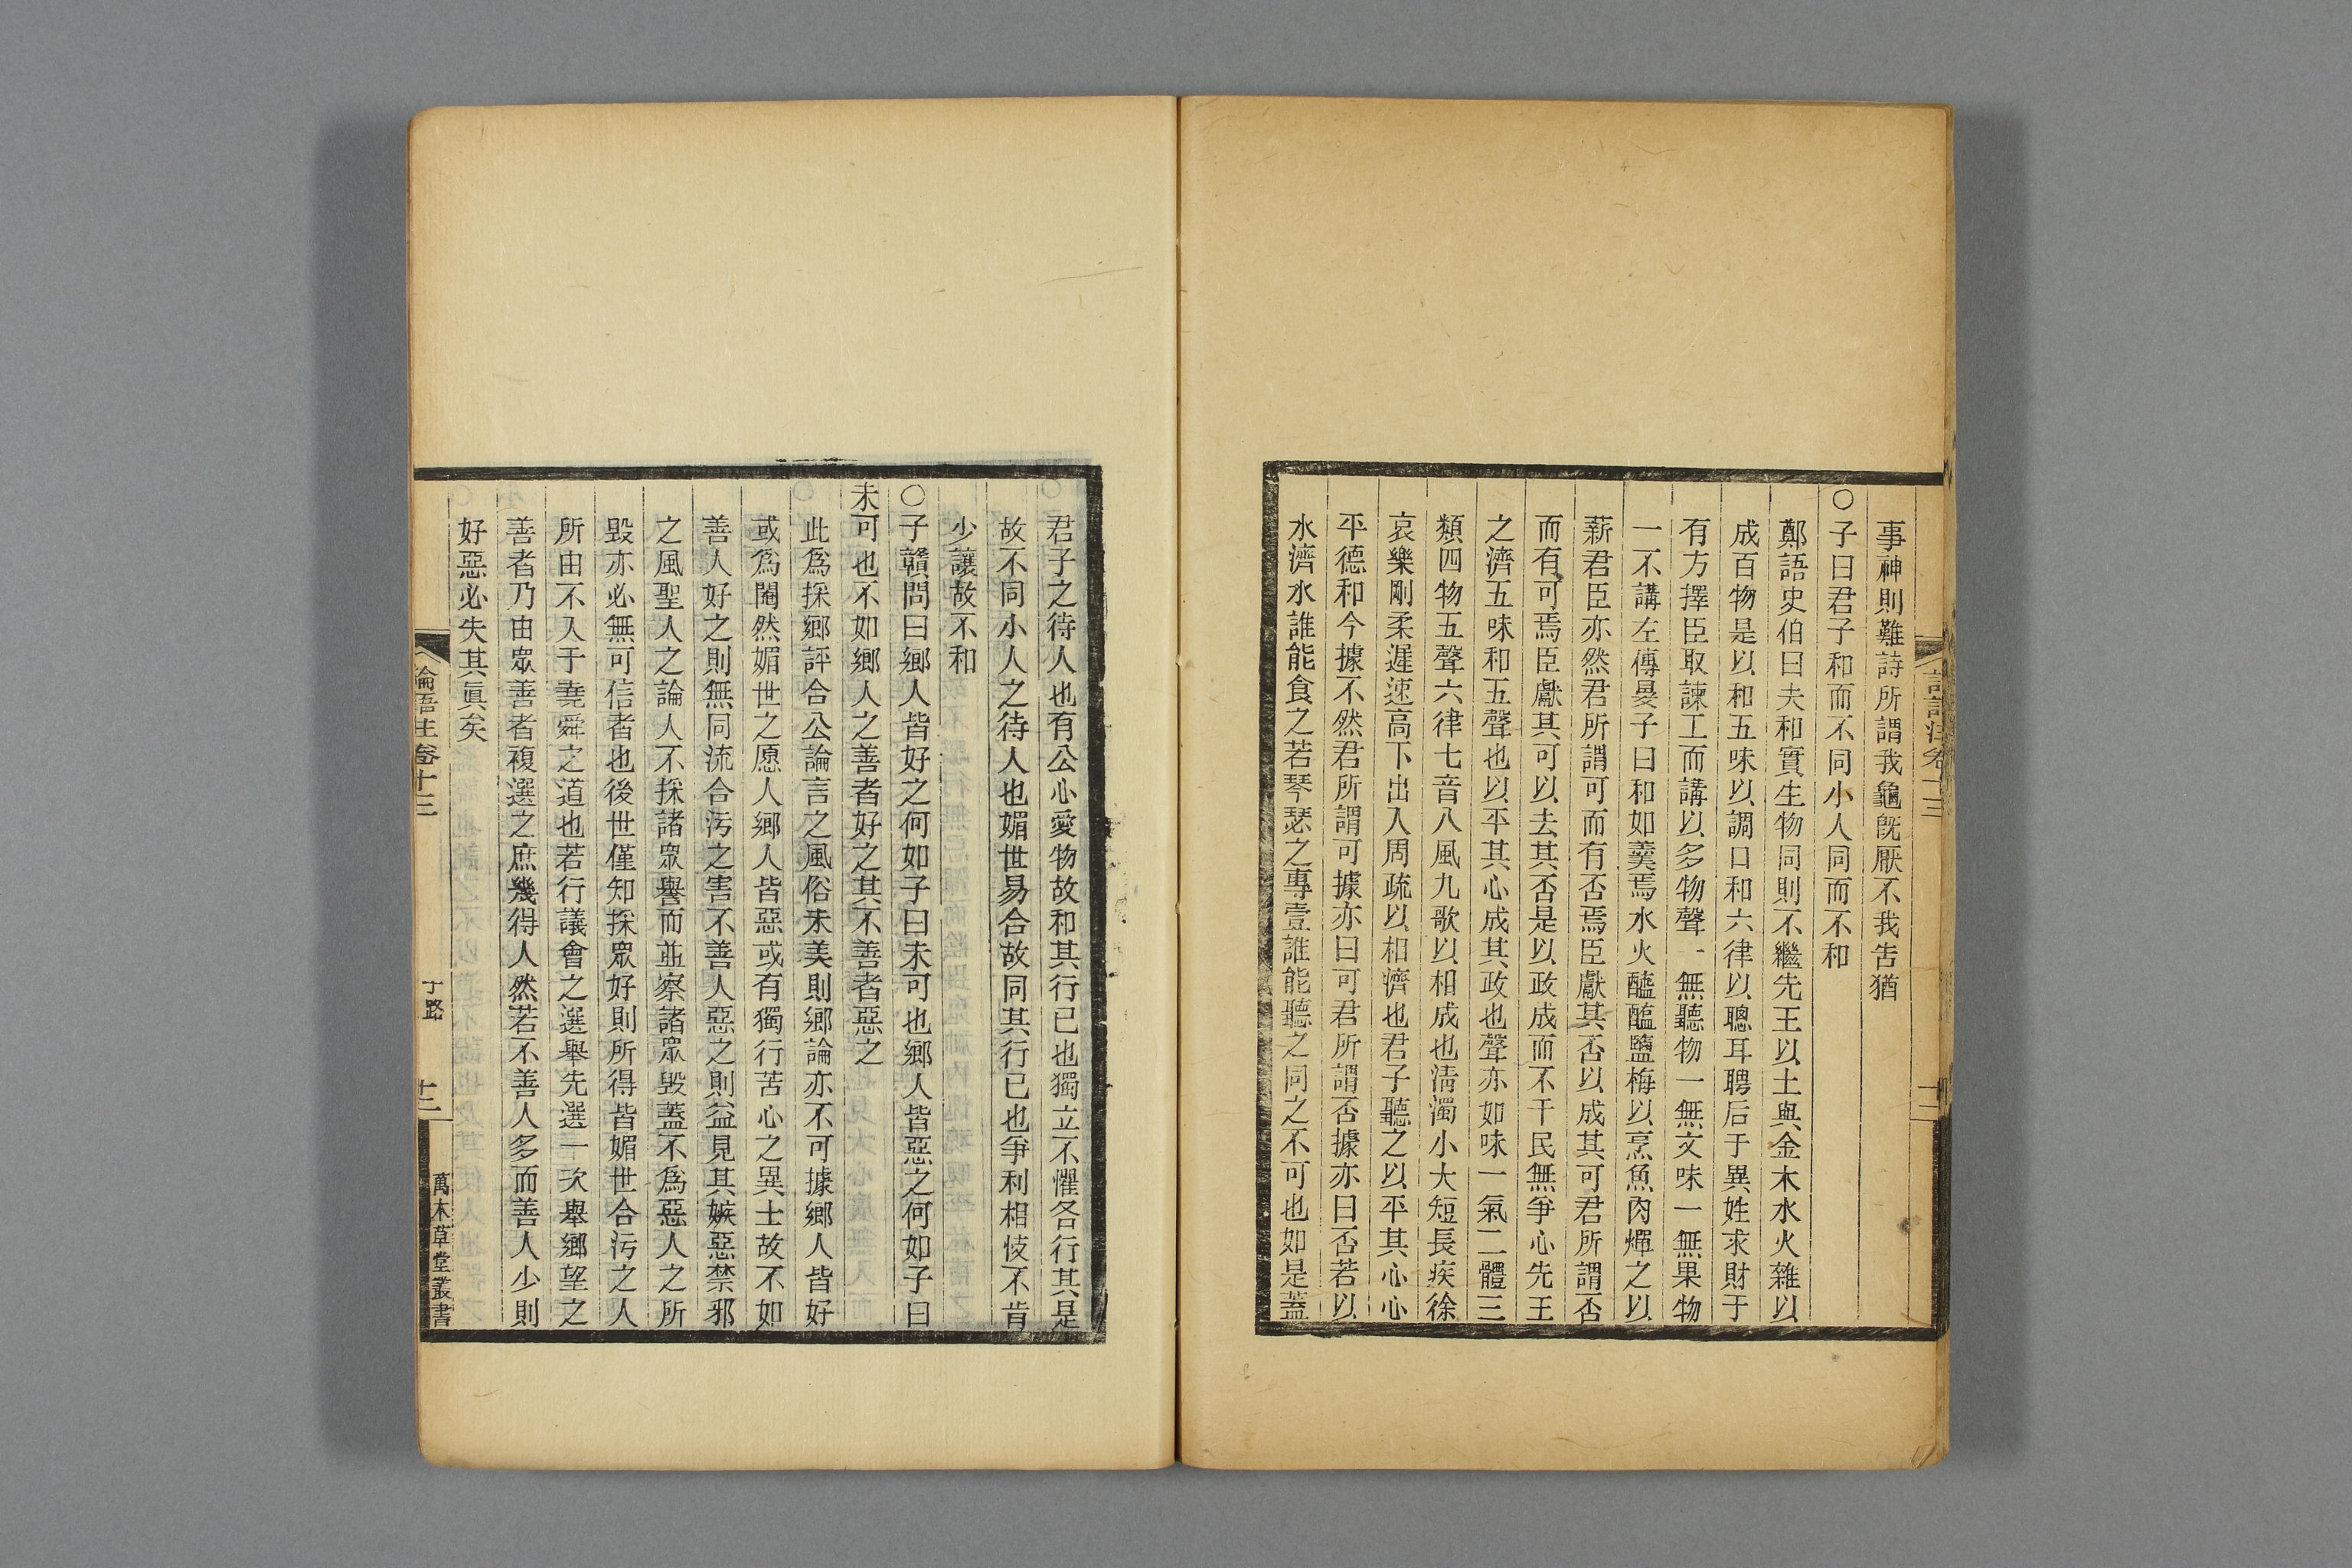 事神則難詩所謂我龜旣厭不我告猶
○子曰君子和而不同小人同而不和
鄭語史伯曰夫和實生物同則不繼先王以土與金木水火雜以
成百物是以和五味以調口和六律以聰耳聘后于異姓求財于
有方擇臣取諫工而講以多物聲一無聽物一無文味一無果物
一不講左傳晏子曰和如羹焉水火醯醢鹽梅以烹魚肉燀之以
薪君臣亦然君所謂可而有否焉臣獻其否以成其可君所謂否
而有可焉臣獻其可以去其否是以政成而不干民無爭心先王
之濟五味和五聲也以平其心成其政也聲亦如味一氣二體三
類四物五聲六律七音八風九歌以相成也淸濁小大短長疾徐
哀樂剛柔遲速高下出入周疏以相濟也君子聽之以平其心心
平德和今據不然君所謂可據亦曰可君所謂否據亦曰否若以
水濟水誰能食之若琴瑟之專壹誰能聽之同之不可也如是蓋
君子之待人也有公心愛物故和其行已也獨立不懼各行其是
故不同小人之待人也媚世易合故同其行已也爭利相忮不肯
少讓故不和
○子贛問曰鄉人皆好之何如子曰未可也鄉人皆惡之何如子曰
未可也不如鄉人之善者好之其不善者惡之
此爲採鄉評合公論言之風俗未美則鄉論亦不可據鄉人皆好
或爲閹然媚世之愿人鄉人皆惡或有獨行苦心之異士故不如
善人好之則無同流合污之害不善人惡之則益見其嫉惡禁邪
之風聖人之論人不採諸眾譽而並察諸眾毀蓋不爲惡人之所
毀亦必無可信者也後世僅知採眾好則所得皆媚世合污之人
所由不入于堯舜之道也若行議會之選舉先選一次舉鄉望之
善者乃由眾善者複選之庶幾得人然若不善人多而善人少則
好惡必失其眞矣
論語注卷十三
子路
十二
萬木草堂叢書